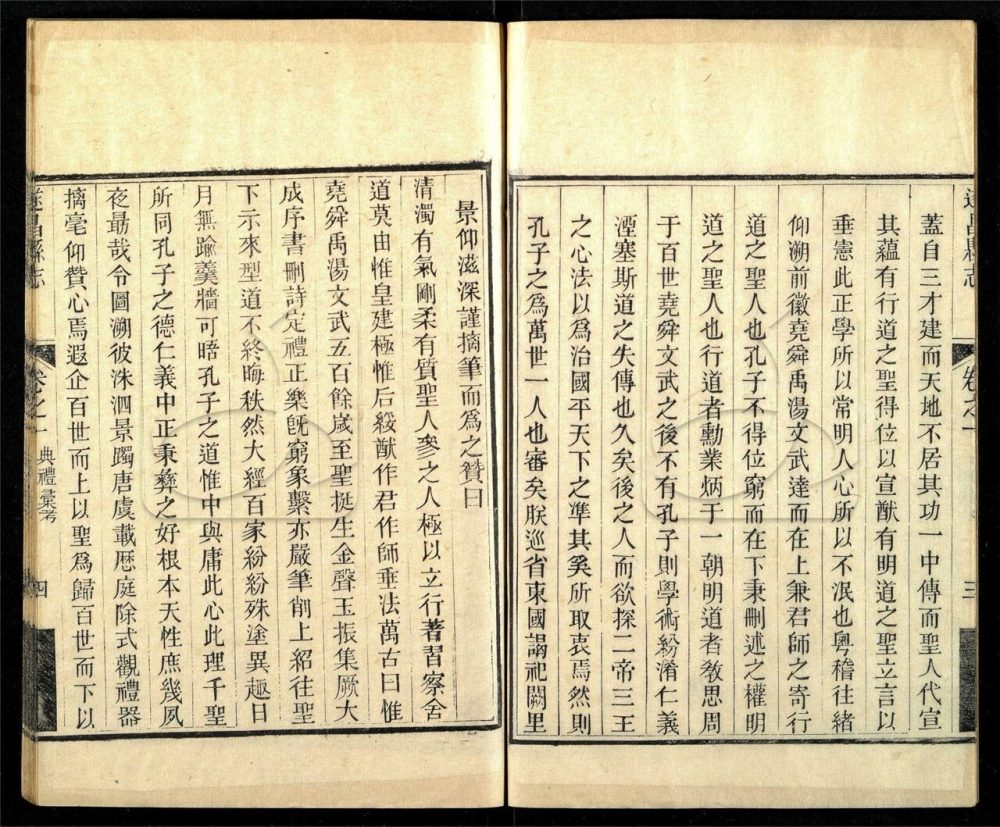 遂昌縣志
卷之一
三
蓋自三才建而天地不居其功一中傳而聖人代宣
其蘊有行道之聖得位以宣猷有明道之聖立言以
垂憲此正學所以常明人心所以不泯也粵稽往緒
仰溯前徽堯舜禹湯文武達而在上兼君師之寄行
道之聖人也孔子不得位窮而在下秉刪述之權明
道之聖人也行道者勳業炳于一朝明道者敎思周
于百世堯舜文武之後不有孔子則學術紛淆仁義
湮塞斯道之失傳也久矣後之人而欲探二帝三王
之心法以爲治國平天下之準其奚所取衷焉然則
孔子之爲萬世一人也審矣朕巡省東國謁祀闕里
景仰滋深謹摛筆而爲之贊曰
清濁有氣剛柔有質聖人參之人極以立行著習察舍
道莫由惟皇建極惟后綏猷作君作師垂法萬古曰惟
堯舜禹湯文武五百餘歲至聖挺生金聲玉振集厥大
成序書刪詩定禮正樂旣窮象繫亦嚴筆削上紹往聖
下示來型道不終晦秩然大經百家紛紛殊塗異趣日
月無踰羹牆可晤孔子之道惟中與庸此心此理千聖
所同孔子之德仁義中正秉彝之好根本天性庶幾夙
夜勗哉令圖溯彼洙泗景躅唐虞載歷庭除式觀禮器
摛毫仰贊心焉遐企百世而上以聖爲歸百世而下以
遂昌縣志
卷之一
典禮彙考
四